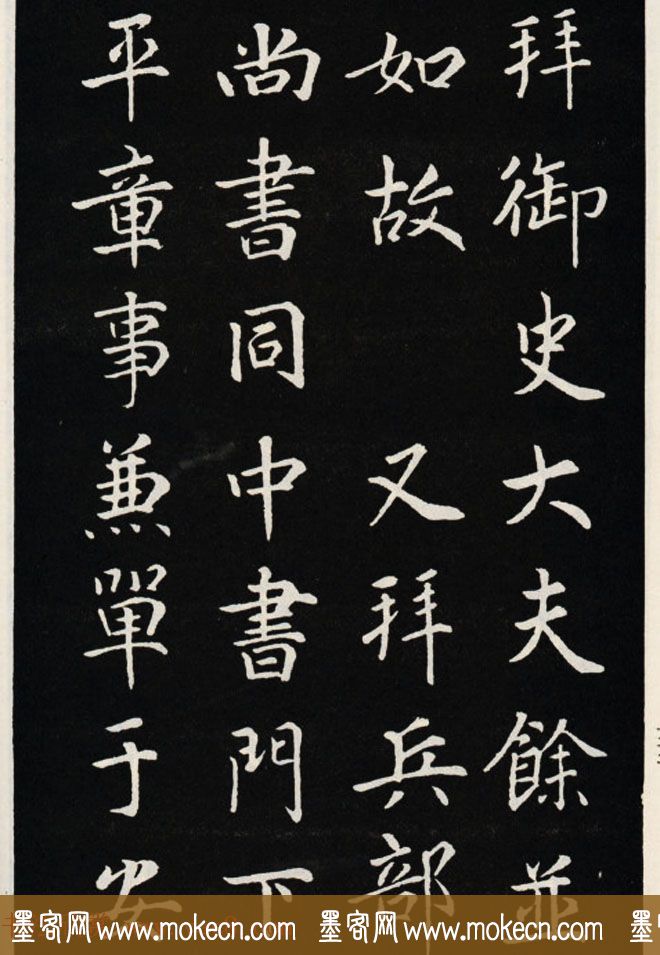 拜御史大夫餘並
如故 又拜兵部
尚書同中書門下
平章事兼單于安
墨客网 www.mokecn.com 墨客网 www.mokecn.com 墨